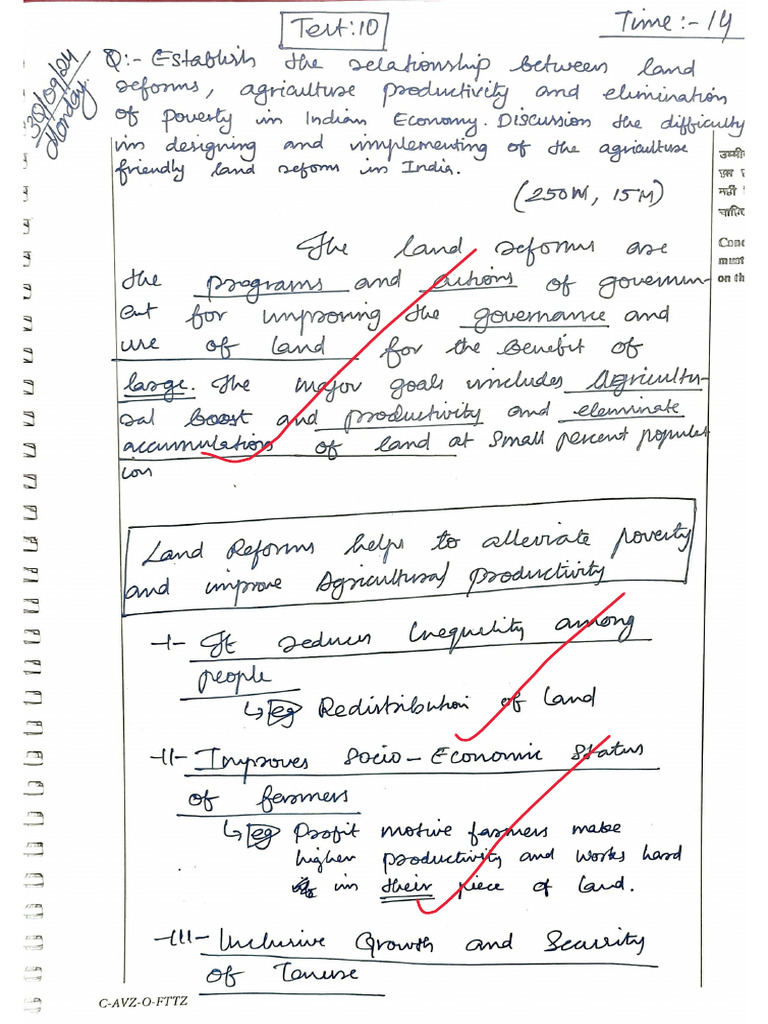 Test:10
Time:- 14
30/09/24
Monday.
Q:- Establish the relationship between land
reforms, agriculture productivity and elimination
of poverty in Indian Economy. Discussion the difficulty
in designing and implementing of the agriculture
friendly land reform in India.
(250W, 15M)
The land reforms are
the programs and actions of governm-
ent for improving the governance and
use of land for the benefit of
large. The major goals includes Agricultu-
ral boost and productivity and eleminate
accumulation of land at small percent populat
ion
Land Reforms helps to alleviate poverty
and improve Agricultural productivity
-I- It reduces Inequality among
people
↳ eg Redistribution of land
-II- Improves Socio-Economic Status
of farmers
↳ eg Profit motive farmers make
higher productivity and works hard
in their piece of land.
-III- Inclusive Growth and Security
of Tenure
C-AVZ-O-FTTZ
उम्मीद
इस
नहीं
चाहिए
Cand
must
on th